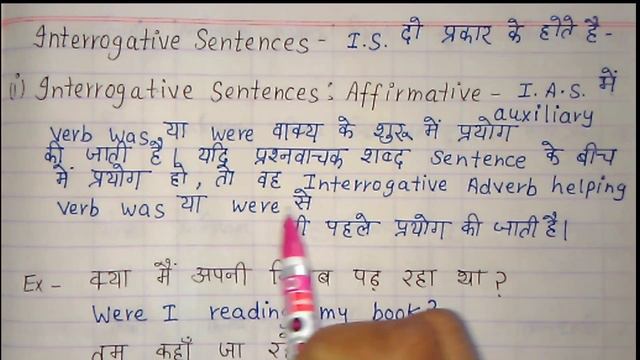 Interrogative Sentences - I.S. दो प्रकार के होते है -
(i) Interrogative Sentences: Affirmative - I.A.S. में
auxiliary
verb was या were वाक्य के शुरू में प्रयोग
की जाती है। यदि प्रश्नवाचक शब्द sentence के बीच
में प्रयोग हो, तो वह Interrogative Adverb helping
verb was या were से
पहले प्रयोग की जाती है।
Ex - क्या मैं अपनी पढ़ रहा था?
Were I reading my book?
तुम कहाँ जा